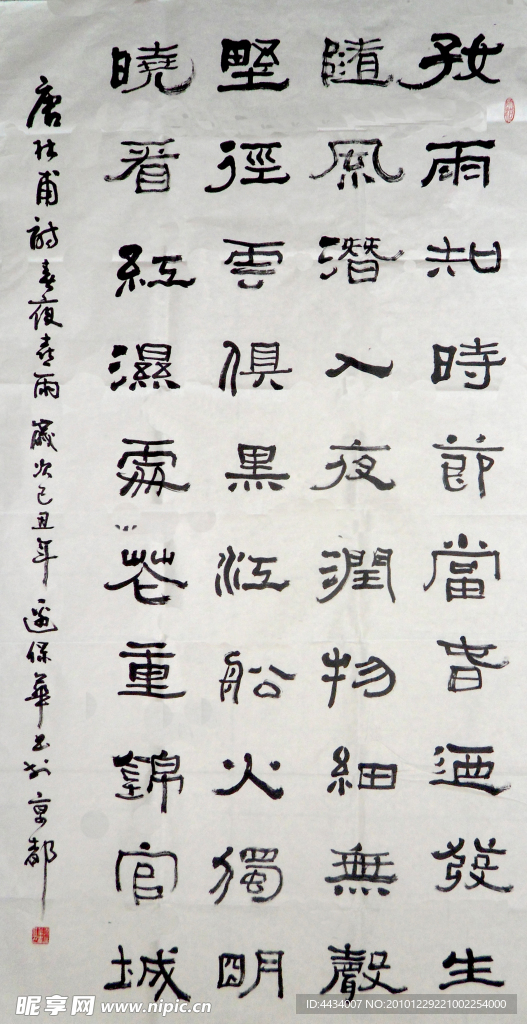 好雨知時節當旾迺發生
隨風潛入夜潤物細無聲
野徑雲俱黑江船火獨明
曉看紅濕處花重錦官城
唐杜甫詩春夜喜雨 歲次己丑年 保華書於京都
昵享网 www.nipic.cn
ID:4434007 NO:20101229221002254000